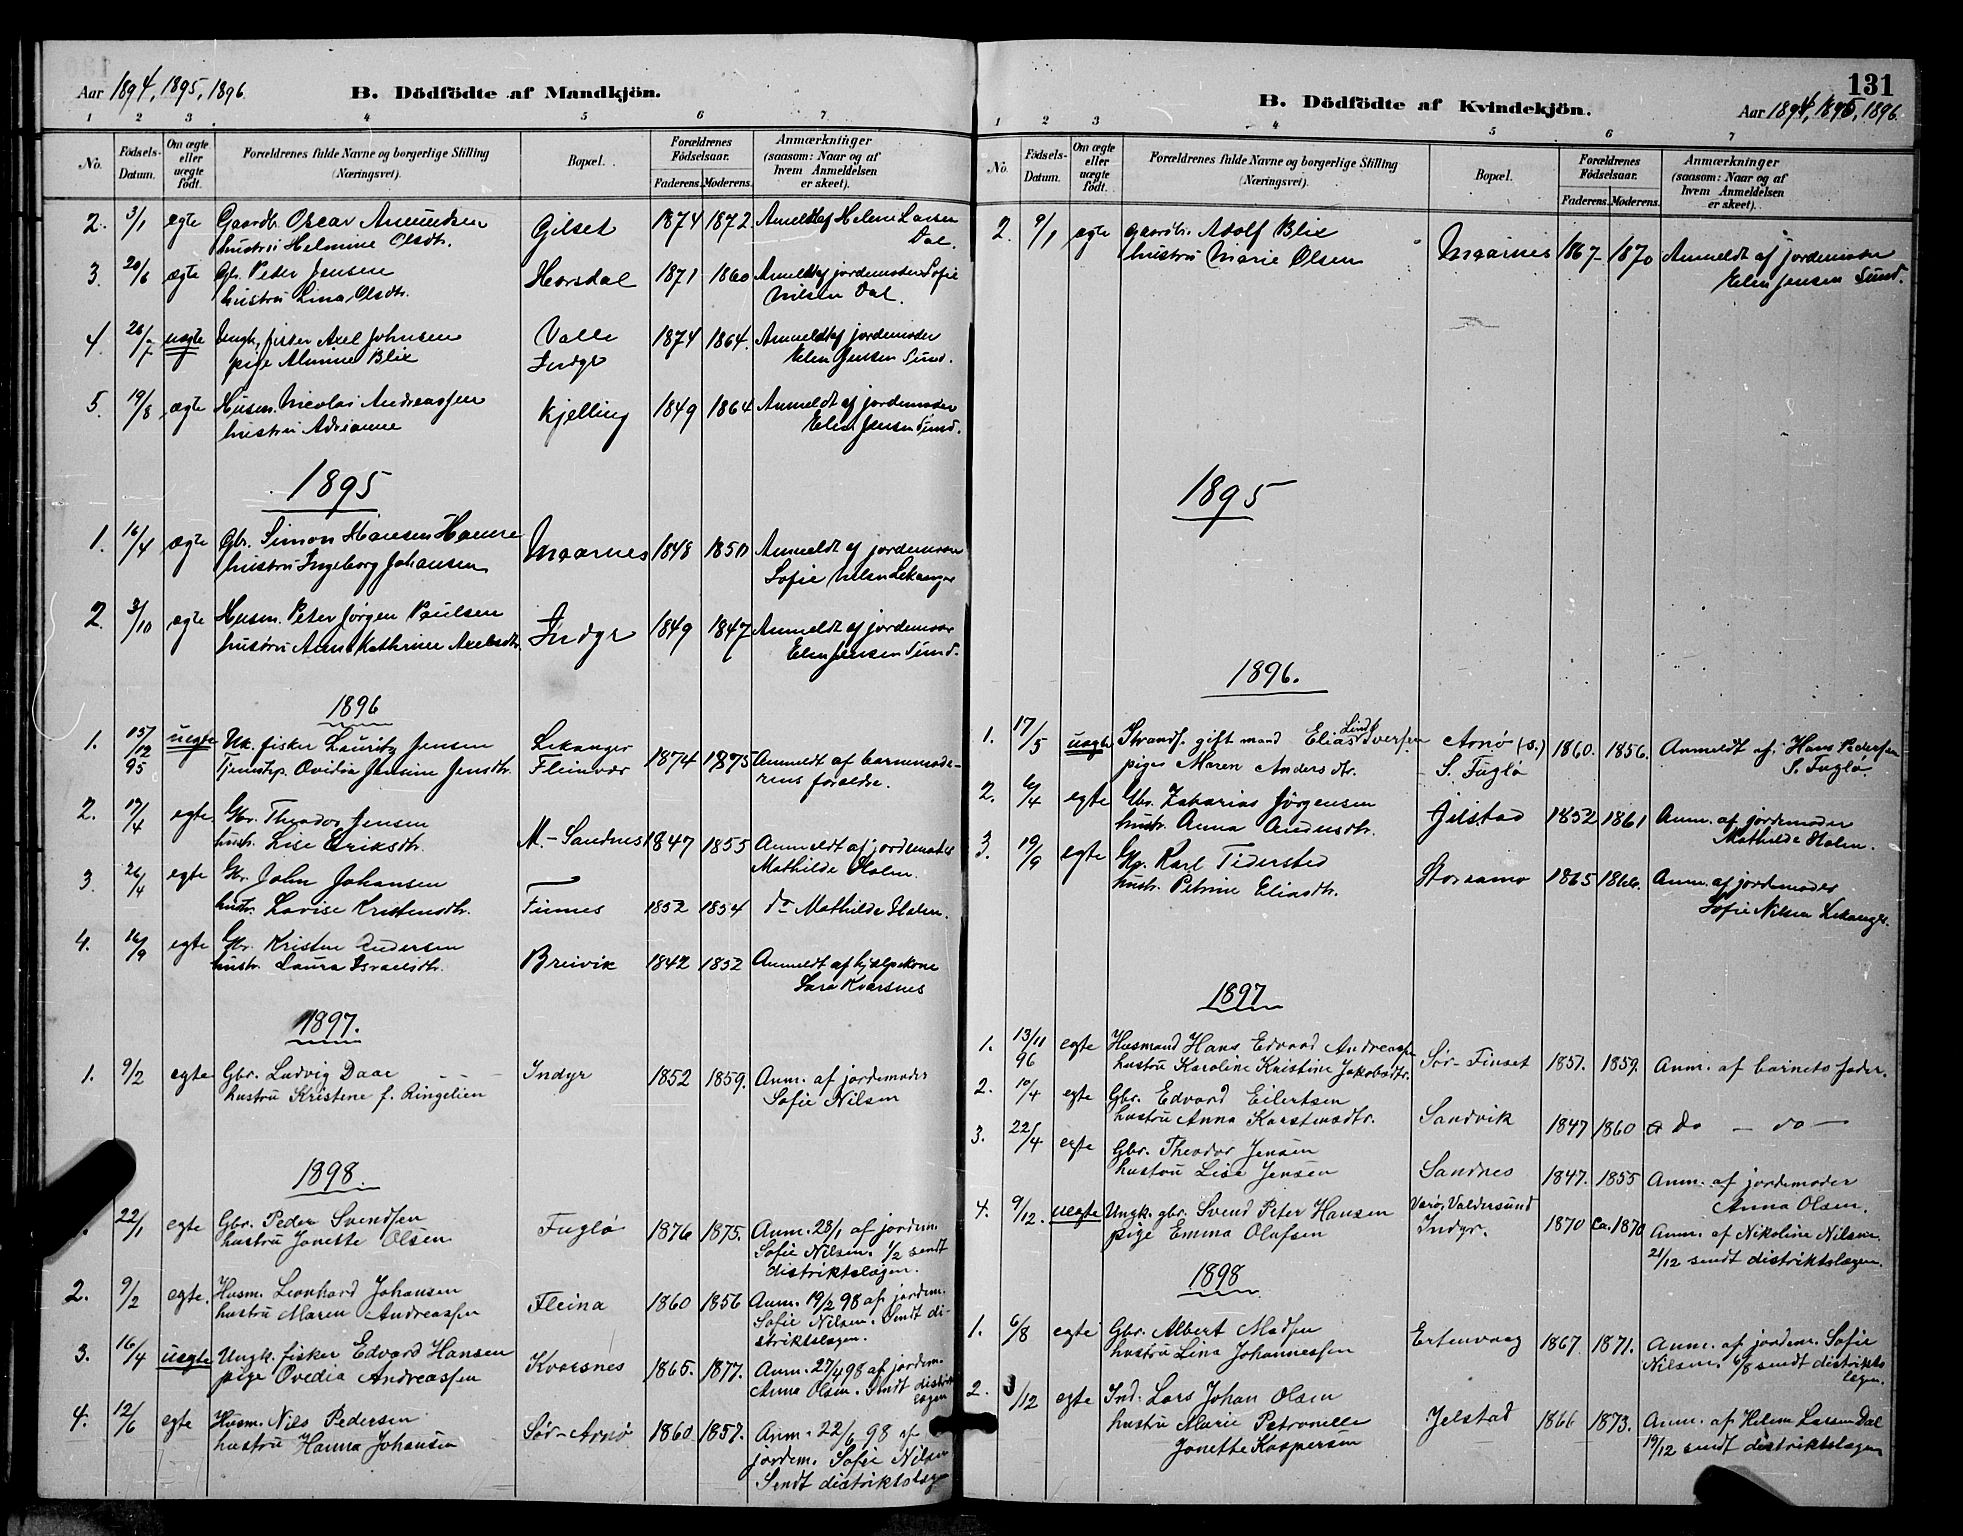 Aar 1894, 1895, 1896.
B. Dödfödte af Mandkjön.
1 2 3 4 5 6 7
No. Födsels-Datum. Om ægte eller uægte födt. Forældrenes fulde Navne og borgerlige Stilling (Næringsvei). Bopæl. Forældrenes Födselsaar. Faderens. Moderens. Anmærkninger (saasom: Naar og af hvem Anmeldelsen er skeet).
2. 3/1 egte Gaardb. Oscar Amundsen Gilset 1874 1872 Anmeldt af Helene Larsen
hustru Helmine Olsdtr. Dal.
3. 20/6 ægte Gb. Peder Jensen Horsdal 1871 1860 Anmeldt af jordemoder Sofie
hustru Lina Olsdtr. Nilsen Dal.
4. 26/7 uægte Ungk. fisker Axel Johnsen Valle 1874 1864. Anmeldt af jordemoder
pige Almine Blix Indyr Elen Jensen Sund.
5. 19/8 ægte Husm. Nicolai Andreassen Kjelling 1849 1864 Anmeldt af jordemoder
hustru Adrianne Elen Jensen Sund.
1895
1. 16/4 ægte Gbr. Simon Hansen Hamre Maarnes 1848 1850 Anmeldt af jordemoder
hustru Ingeborg Johansen Sofie Nilsen Lekanger
2. 3/10 ægte Husm. Peter Jørgen Paulsen Indyr 1849 1847 Anmeldt af jordemoder
hustru Ane Kathrine Axelsdtr. Elen Jensen Sund.
1896
1. 15/12 95 uegte Uk. fisker Lauritz Jensen Lekanger 1874 1875 Anmeldt af barnemode-
Tjenestep. Ovidia Jensine Jensdtr. Fleinvær rens forældre.
2. 17/4 egte Gbr. Theodor Jensen M.-Sandnes 1847 1855 Anmeldt af jordemoder
hustr. Lise Eriksdtr. Mathilde Holm.
3. 26/4 egte Gbr. John Johansen Finnes 1852 1854 do Mathilde Holm.
hustr. Lovise Kristensdtr.
4. 16/9 egte Gbr. Kristen Andersen Breivik 1842 1852 Anmeldt af hjælpekone
hustr. Laura Israelsdtr. Sara Kvarsnes
1897.
1. 9/2 egte Gbr. Ludvig Daae Indyr 1852 1859. Anm. af jordemoder
hustru Kristene f. Ringelien Sofie Nilsen
1898.
22/1 egte Gbr. Peder Svendsen Fuglø 1876 1875. Anm. 28/1 af jordem.
hustru Jonette Olsen Sofie Nilsen. 1/2 sendt
distriktslægen.
2. 9/2 egte. Husm. Leonhard Johansen Fleina 1860 1856 Anm. 19/2 98 af jordem.
hustru Maren Andreassen Sofie Nilsen. Sendt di-
striktslægen.
3. 16/4 uegte Ungk. fisker Edvard Hansen Kvarsnes 1865. 1877. Anm. 27/4 98 af jordem.
pige Ovedia Andreassen Anna Olsen. Sendt distrikts
lægen
4. 12/6 egte Husm. Nils Pedersen Sør-Arnø 1860 1857. Anm. 22/6 98 af
hustru Hanna Johansen jordem. Sofie Nilsen
Sendt distriktslægen
131
B. Dödfödte af Kvindekjön.
Aar 1894, 1895, 1896.
1 2 3 4 5 6 7
No. Födsels-Datum. Om ægte eller uægte födt. Forældrenes fulde Navne og borgerlige Stilling (Næringsvei). Bopæl. Forældrenes Födselsaar. Faderens. Moderens. Anmærkninger (saasom: Naar og af hvem Anmeldelsen er skeet).
2. 9/1 ægte Gaardbr. Adolf Blix Maarnes 1867 1870 Anmeldt af jordemoder
hustru Marie Olsen Elen Jensen Sund.
1895
1896.
1. 17/5 uægte Strands. gift mand Elias Lind Iversen Arnø (s.) 1860. 1856. Anmeldt af Hans Pedersen
pige Maren Andersdtr. S. Fuglø S. Fuglø.
2. 6/4 egte Gbr. Zakarias Jörgensen Jelstad 1852 1861 Anm. af jordemoder
hustr. Anna Andersdtr. Mathilde Holm.
3. 19/9 egte Gbr. Karl Tidersted 1865 1866. Anm. af jordemoder
hustr. Petrine Eliasdtr. Sofie Nilsen Lekanger.
1897
1. 13/11 96 egte Husmand Hans Edvard Andreassen Sør-Finset 1851. 1859. Anm. af barnets fader.
hustru Karoline Kristine Jakobsdtr.
2. 10/4 egte Gbr. Edvard Eilertsen Sandvik 1847 1860 do — do —
hustru Anna Karstensdtr.
3. 22/4 egte Gbr. Theodor Jensen Sandnes 1847. 1855 Anm. af jordemoder
hustru Lise Jensen Anna Olsen.
4. 9/12. uegte Ungk. gbr. Svend Peter Hansen Varø, Valdersund 1870 ca. 1870 Anm. af Nikoline Nilsen.
pige Emma Olufsen Indyr. 21/12 sendt distriktslægen.
1898
1. 6/8 egte Gbr. Albert Madsen Ertenvaag 1867. 1871. Anm. af jordem. Sofie
hustru Lina Johannessen Nilsen. 6/8 sendt distrikts
lægen.
2. 3/12 egte Ind. Lars Johan Olsen Jelstad 1866 1873. Anm. af Helene Larsen Dal
hustru Marie Petronelle 19/12 sendt distriktslægen
Jonette Kaspersen